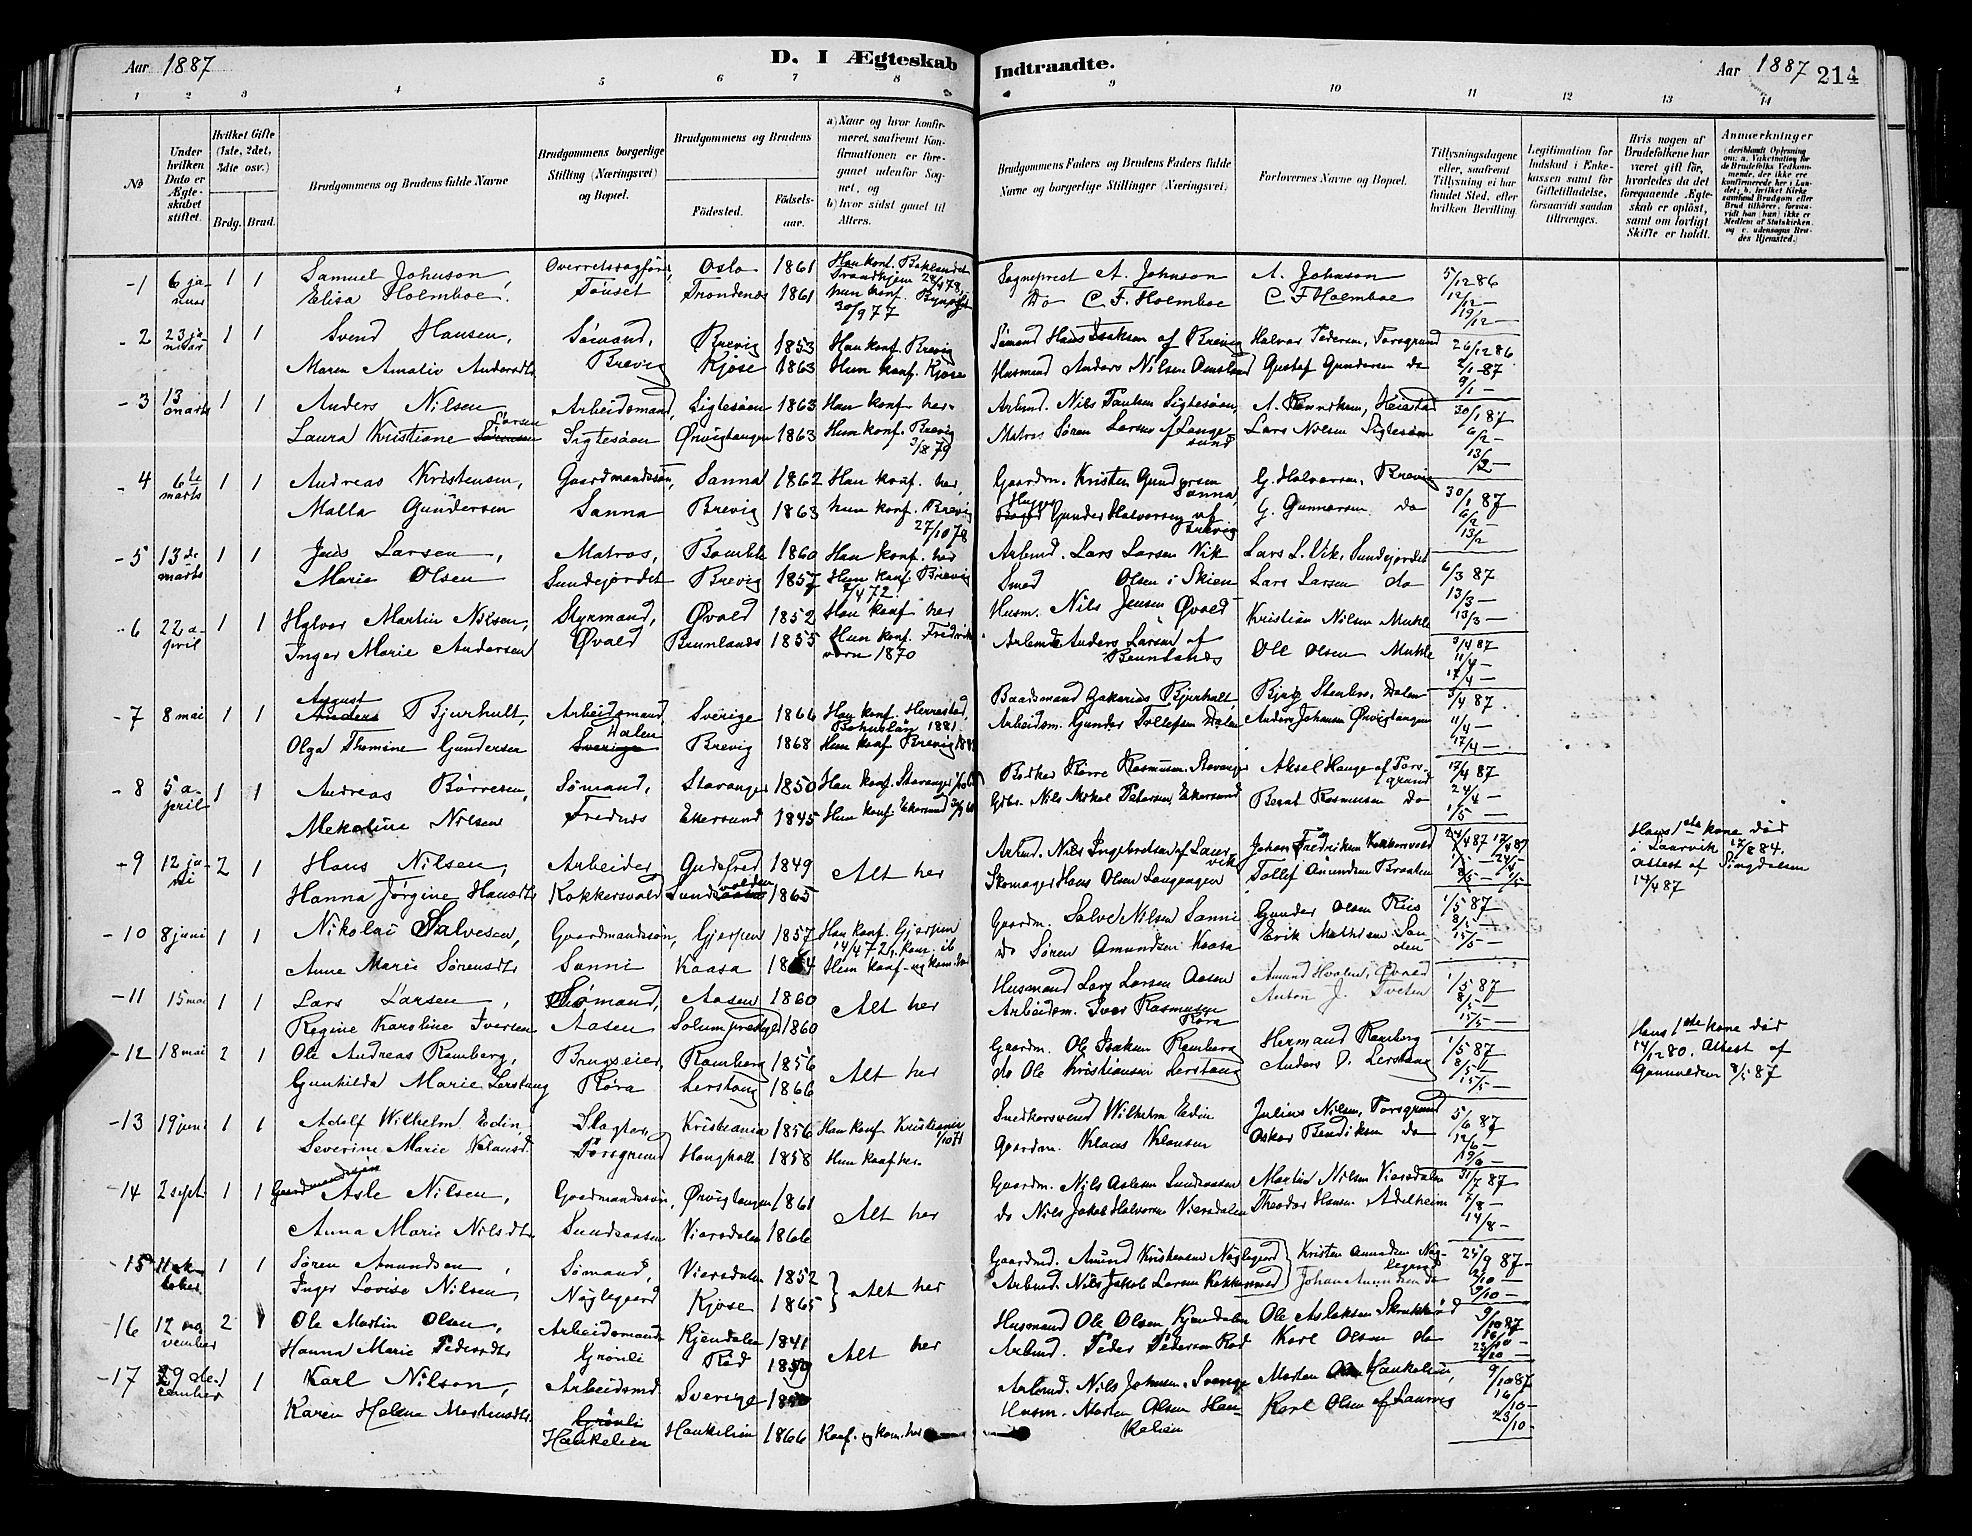 Aar 1887
D. I Ægteskab Indtraadte.
Aar 1887 214
1 2 3 4 5 6 7 8 9 10 11 12 13 14
No
Under hvilken Dato er Ægteskabet stiftet.
Hvilket Gifte (1ste, 2det, 3die osv.)
Brdg. Brud.
Brudgommens og Brudens fulde Navne
Brudgommens borgerlige Stilling (Næringsvei) og Bopæl.
Brudgommens og Brudens
Födested. Födselsaar.
a) Naar og hvor konfirmeret, saafremt Konfirmationen er foregaaet udenfor Sognet, og
b) hvor sidst gaaet til Alters.
Brudgommens Faders og Brudens Faders fulde Navne og borgerlige Stillinger (Næringsvei).
Forlovernes Navne og Bopæl.
Tillysningsdagene eller, saafremt Tillysning ei har fundet Sted, efter hvilken Bevilling.
Legitimation for Indskud i Enkekassen samt for Giftetilladelse, forsaavidt saadan tiltrænges.
Hvis nogen af Brudefolkene har været gift før, hvorledes da det foregaaende Ægteskab er opløst, samt om lovligt Skifte er holdt.
Anmærkninger (deriblandt Oplysning om: a. Vakcination for de Brudefolks Vedkommende, der ikke ere konfirmerede her i Landet; b. hvilket Kirkesamfund Brudgom eller Brud tilhører, forsaavidt han (hun) ikke er Medlem af Statskirken, og c. udensogns Brudes Hjemsted.)
1 6 januar 1 1 Samuel Johnson, Overretssagfører, Oslo 1861 Han konf. Baklandet Trondhjem Sogneprest A. Johnson A. Johnson 5/12 86
Elisa Holmboe. Tönset Trondenes 1861 hun konf. 30/9 77 Do C. F. Holmboe C F Holmboe 12/12 — 19/12 —
2 23 januar 1 1 Svend Hansen, Sömand, Brevig 1853 Han konf. Brevig Sömand Hans Isaksen af Brevig Halvor Pedersen, Porsgrund 26/12 86
Maren Amalie Andersdtr Brevig Kjose 1863 Hun konf. Kjose Husmand Anders Nilsen Gustaf Gundersen do 2/1 87 9/1 —
3 13 marts 1 1 Anders Nilsen Arbeidsmand, Sigtesöen 1863 Han konf. her. Arbmd. Nils Paulsen Sigtesöen, Heistad 30/1 87
Laura Kristiane Larsen Sigtesöen Ørvigtangen 1863 Hun konf. Brevig 3/8 79 Matros Søren Larsen af Langesund Lars Nilsen Sigtesöen 6/2 — 13/2 —
4 6te marts 1 1 Andreas Kristensen, Gaardmandssön, Sanna 1862 Han konf. her, Gaardm. Kristen Gundersen Sanna, G. Halvorsen, Brevig 30/1 87
Malla Gundersen Sanna Brevig 1863 hun konf. Brevig 27/10 78 Gunder Halvorsen af Brevig G. Gunnarsen do 6/2 — 13/2
5 13de marts 1 1 Jens Larsen, Matros, Bamble 1860 Han konf. her Arbmd. Lars Larsen Vik Lars L. Vik, Sundejordet 6/3 87
Marie Olsen Sundejordet Brevig 1857 Hun konf. Brevig 7/4 72 Smed Olsen i Skien Lars Larsen do 13/3 —
6 22 april 1 1 Halvor Martin Nilsen, Styrmand, Øvald 1852 Han konf her Husm. Nils Jensen Øvald Kristian Nilsen Muhle 13/3 —
Inger Marie Andersen Øvald Brunlanes 1855 Hun konf. Frederiksværn 1870 Arbmd Anders Larsen af Brunlanes Ole Olsen Muhle 3/4 87 11/4 — 17/4 —
7 8 mai 1 1 August Bjurhult, Arbeidsmand, Sverige 1866 Han konf. Herrestad, Bohuslän 1881 Baadsmand Zakarias Bjurhult, Dalen 3/4 87
Olga Thomine Gundersen Dalen Brevig 1868 Hun konf Brevig Arbeidsm. Gunder Tollefsen Dalen Anders Johansen Ørvigtangen 11/4 — 17/4 —
8 5 april 1 1 Andreas Börresen, Sømand, Stavanger 1850 Han konf. Stavanger Bödker Börre Rasmussen, Stavanger Aksel Hauge af Porsgrund 17/4 87
Mekaline Nilsen Frednes Ekersund 1845 Hun konf. Ekersund Gdbr. Nils Mikal Petersen, Ekersund Bernt Rasmussen do 24/4 — 1/5 —
9 12 juni 2 1 Hans Nilsen, Arbeider, 1849 Alt her Arbmd. Nils Ingebretsen af Laurvik Johan Fredriksen Kokkersvold 24/4 87 17/4 87
Hanna Jörgine Hansdtr Kokkersvold 1865 Skomager Hans Olsen Langangen Tollef Amundsen Braaten 1/5 — 24/4 — 8/5 — 1/5 —
Hans 1ste kone död i Laurvik 17/8 84. attest af 14/4 87
10 8 juni 1 1 Nikolai Salvesen, Gaardmandssön, Gjerpen 1857 Han konf. Gjerpen 14/4 72, kom. ib Gaardm. Salve Nilsen Sanni Gunder Olsen Riis 1/5 87
Anne Marie Sörensdtr Sanni Kaasa Hun konf. og kom. her do Sören Amundsen Kaasa Erik Mathisen 8/5 — 15/5 —
11 15 mai 1 1 Lars Larsen, Sømand, Aasen 1860 Alt her Husmand Lars Larsen Aasen Amund Øvald 1/5 87
Regine Karoline Iversen Aasen 1860 Arbeidsm. Iver Rasmussen Röra Anton J. Tveten 8/5 — 15/5 —
12 18 mai 2 1 Ole Andreas Ramberg, Brugseier, Ramberg 1856 Alt her Gaardm. Ole Isaksen Ramberg Hermand Ramberg 1/5 87
Gunhilda Marie Lerstang Röra Lerstang 1866 do Ole Kristiansen Lerstang Anders O. Lerstang 8/5 — 15/5 —
Hans 1ste kone död 14/12 80. Attest af 8/5 87
13 19 juni 1 1 Adolf Wilhelm Edin, Slagter, Kristiania 1856 Han konf Kristiania 1/10 71 Snedkersvend Wilhelm Edin Julius Nilsen, Porsgrund 5/6 87
Severine Marie Klausdtr Porsgrund Hougholt 1858 Hun konf her. Gaardm. Klaus Klausen Oskar Bendiksen do 12/6 — 19/6 —
14 2 sept. 1 1 Asle Nilsen, Gaardmandssön, Ørvigtangen 1861 Alt her Gaardm. Nils Aslesen Sundsaasen Martin Nilsen Viersdalen 31/7 87
Anna Marie Nilsdtr Sundsaasen Viersdalen 1866 do Nils Jakob Halvorsen Viersdalen Theodor Hansen Adelheim 7/8 — 14/8 —
15 11 oktober 1 1 Sören Amundsen, Sømand, Viersdalen 1852 Alt her Gaardmd. Amund Kristensen Nöglegaard Kristen Amundsen Nöglegaard 25/9 87
Inger Lovise Nilsen, Nöglegaard Kjose 1865 Arbmd. Nils Jakob Larsen Kokkersvold Johan Amundsen do 2/10 — 9/10 —
16 12 november 2 1 Ole Martin Olsen, Arbeidsmand Kjendalen 1841 Alt her Husmand Ole Olsen Kjendalen Ole Aslaksen 9/10 87
Hanna Marie Pedersdtr Grönli Röd 1859 Arbmd. Peder Pedersen Röd Karl Olsen do 16/10 — 23/10 —
17 29 december 1 Karl Nilsen, Arbeidsmd Sverige Arbmd. Nils Johnsen, Sverige Morten Haukelien, 9/10 87
Karen Helene Mortensdtr Grönli Haukelien Haukelien 1866 Konf. og kom. her Husm. Morten Olsen Haukelien Karl Olsen af Laurvig 16/10 — 23/10 —